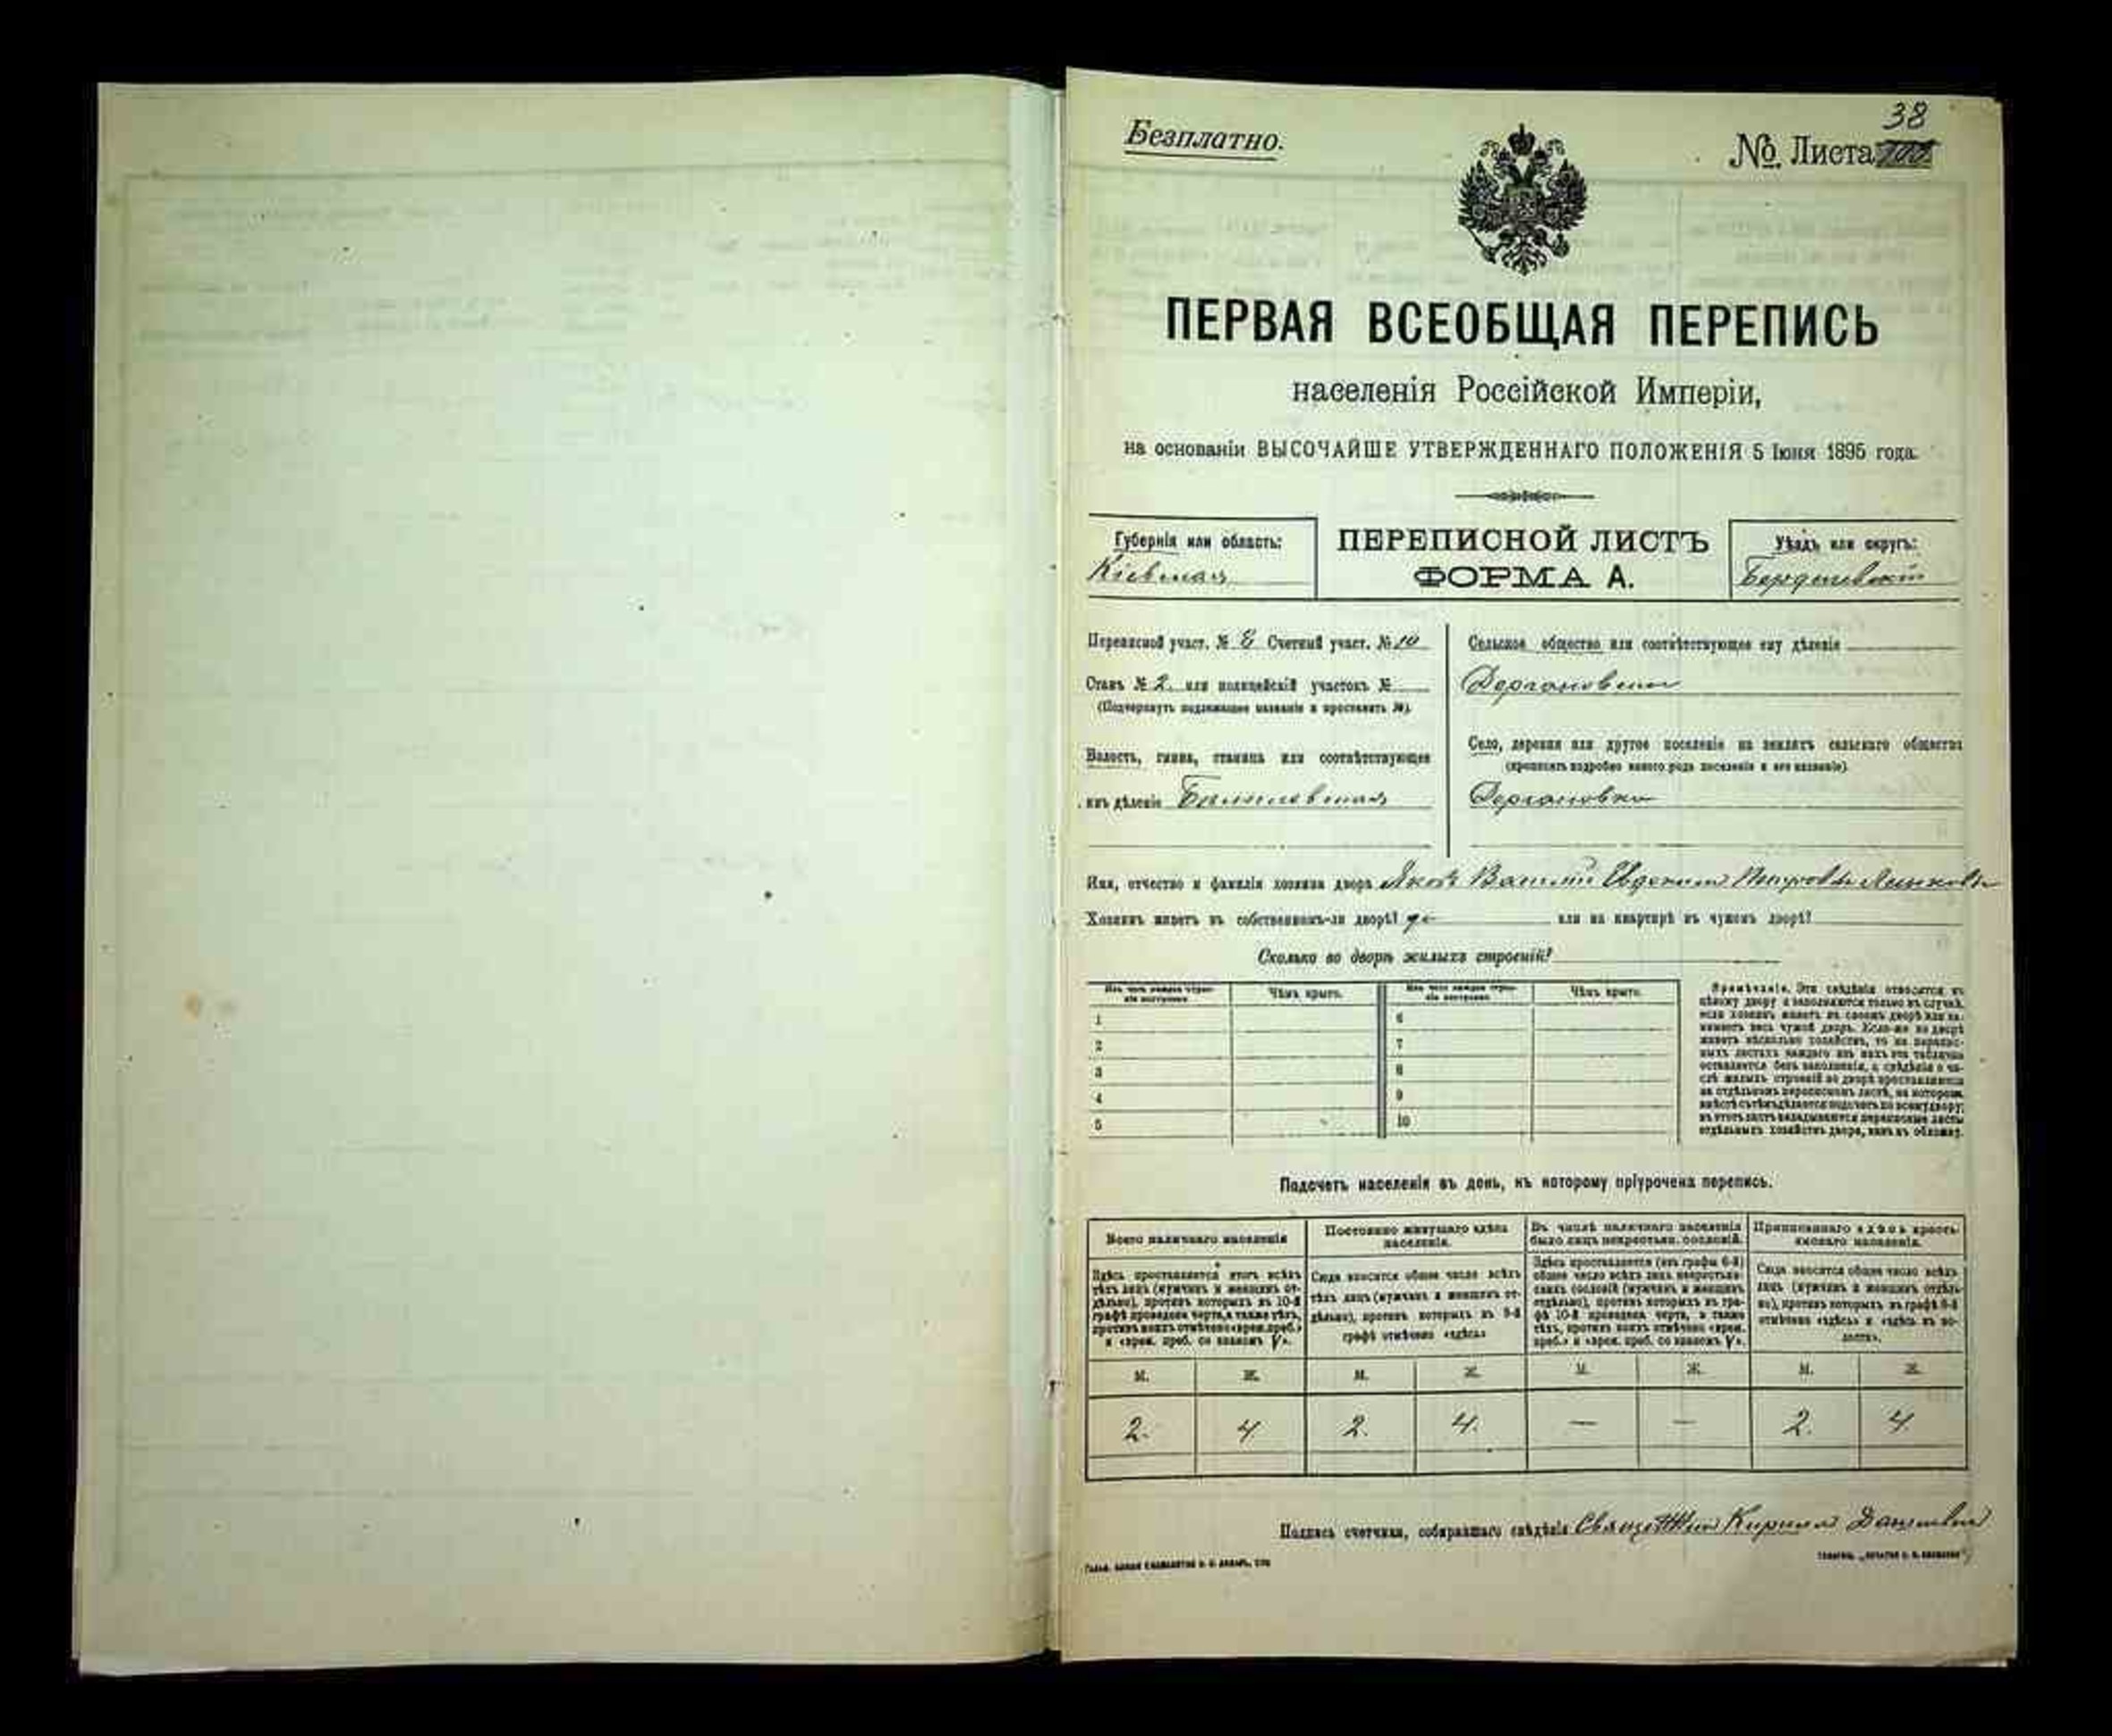 38
Безплатно.
№ Листа
ПЕРВАЯ ВСЕОБЩАЯ ПЕРЕПИСЬ
населенія Россійской Имперіи,
на основаніи ВЫСОЧАЙШЕ УТВЕРЖДЕННАГО ПОЛОЖЕНІЯ 5 Іюня 1895 года.
Губернія или область:
Кіевская
ПЕРЕПИСНОЙ ЛИСТЪ
ФОРМА А.
Уѣздъ или округъ:
Бердичевскій
Переписной участ. № 8 Счетный участ. № 10
Станъ № 2. или полицейскій участокъ №
(Подчеркнуть подлежащее названіе и проставить №).
Волость, гмина, станица или соотвѣтствующее
имъ дѣленіе
Сельское общество или соотвѣтствующее ему дѣленіе
Село, деревня или другое поселеніе на земляхъ сельскаго общества
(прописать подробно какого рода поселеніе и его названіе).
Имя, отчество и фамилія хозяина двора Яковъ Василій Евдокимъ Петровы
Хозяинъ живетъ въ собственномъ-ли дворѣ? или на квартирѣ въ чужомъ дворѣ?
Сколько во дворѣ жилыхъ строеній?
Изъ чего каждое строеніе построено
Чѣмъ крыто.
Изъ чего каждое строеніе построено
Чѣмъ крыто.
1
2
3
4
5
6
7
8
9
10
Примѣчаніе. Эти свѣдѣнія относятся къ
цѣлому двору и заполняются только въ случаѣ,
если хозяинъ живетъ въ своемъ дворѣ или за-
нимаетъ весь чужой дворъ. Если-же во дворѣ
живетъ нѣсколько хозяйствъ, то на перепис-
ныхъ листахъ каждаго изъ нихъ эта табличка
оставляется безъ заполненія, а свѣдѣнія о чи-
слѣ жилыхъ строеній во дворѣ проставляются
на отдѣльномъ переписномъ листѣ, на которомъ
вмѣстѣ съ тѣмъ дѣлается подсчетъ по всему двору;
въ этотъ листъ вкладываются переписные листы
отдѣльныхъ хозяйствъ двора, какъ въ обложку.
Подсчетъ населенія въ день, къ которому пріурочена перепись.
Всего наличнаго населенія
Постоянно живущаго здѣсь
населенія.
Въ числѣ наличнаго населенія
было лицъ некрестьян. сословій.
Приписаннаго здѣсь кресть-
янскаго населенія.
Здѣсь проставляется итогъ всѣхъ
тѣхъ лицъ (мужчинъ и женщинъ от-
дѣльно), противъ которыхъ въ 10-й
графѣ проведена черта, а также тѣхъ,
противъ коихъ отмѣчено «врем. преб.»
и «врем. преб. со знакомъ V».
Сюда вносится общее число всѣхъ
тѣхъ лицъ (мужчинъ и женщинъ от-
дѣльно), противъ которыхъ въ 9-й
графѣ отмѣчено «здѣсь»
Здѣсь проставляется (изъ графы 6-й)
общее число всѣхъ лицъ некрестьян-
скихъ сословій (мужчинъ и женщинъ
отдѣльно), противъ которыхъ въ гра-
фѣ 10-й проведена черта, а также
тѣхъ, противъ коихъ отмѣчено «врем.
преб.» и «врем. преб. со знакомъ V».
Сюда вносится общее число всѣхъ
лицъ (мужчинъ и женщинъ отдѣль-
но), противъ которыхъ въ графѣ 8-й
отмѣчено «здѣсь» и «здѣсь въ во-
лости».
М. Ж. М. Ж. М. Ж. М. Ж.
2. 4 2. 4. — — 2. 4.
Подпись счетчика, собиравшаго свѣдѣнія Кирилл